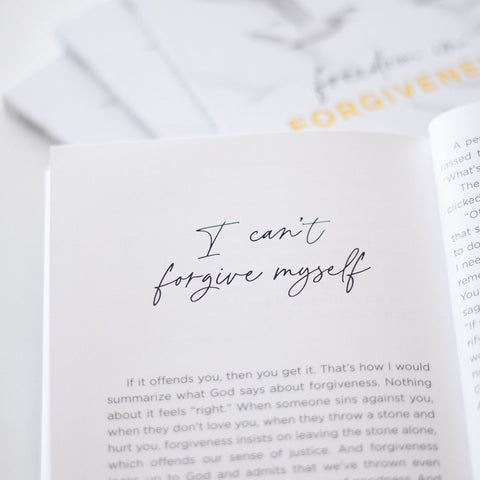 freedom in
FORGIVENESS
I can't
forgive myself
If it offends you, then you get it. That's how I would
summarize what God says about forgiveness. Nothing
about it feels "right." When someone sins against you,
when they don't love you, when they throw a stone and
hurt you, forgiveness insists on leaving the stone alone,
which offends our sense of justice. And forgiveness
looks up to God and admits that we've thrown even
A pe
"What's
The
clicked
"Ol
that s
to do
I nee
reme
You
sag
"If